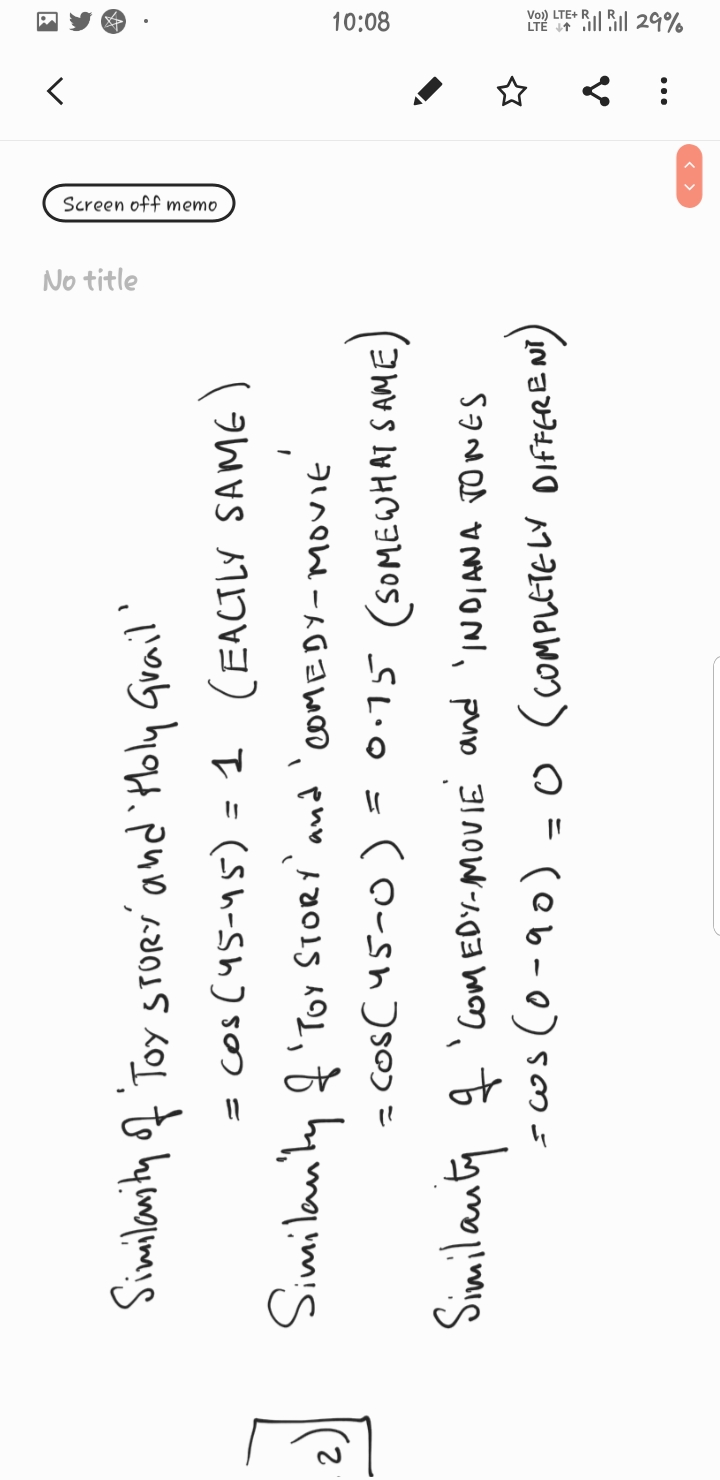 10:08
Vo)) LTE+ R R 29%
LTE
Screen off memo
No title
Similarity of 'TOY STORY' and 'Holy Grail'
= cos(45-45) = 1 (EACTLY SAME)
Similarity of 'TOY STORY' and 'COMEDY-MOVIE'
= cos(45-0) = 0.75 (SOMEWHAT SAME)
Similarity of 'COMEDY-MOVIE' and 'INDIANA JONES
= cos(0-90) = 0 (COMPLETELY DIFFERENT)
2)